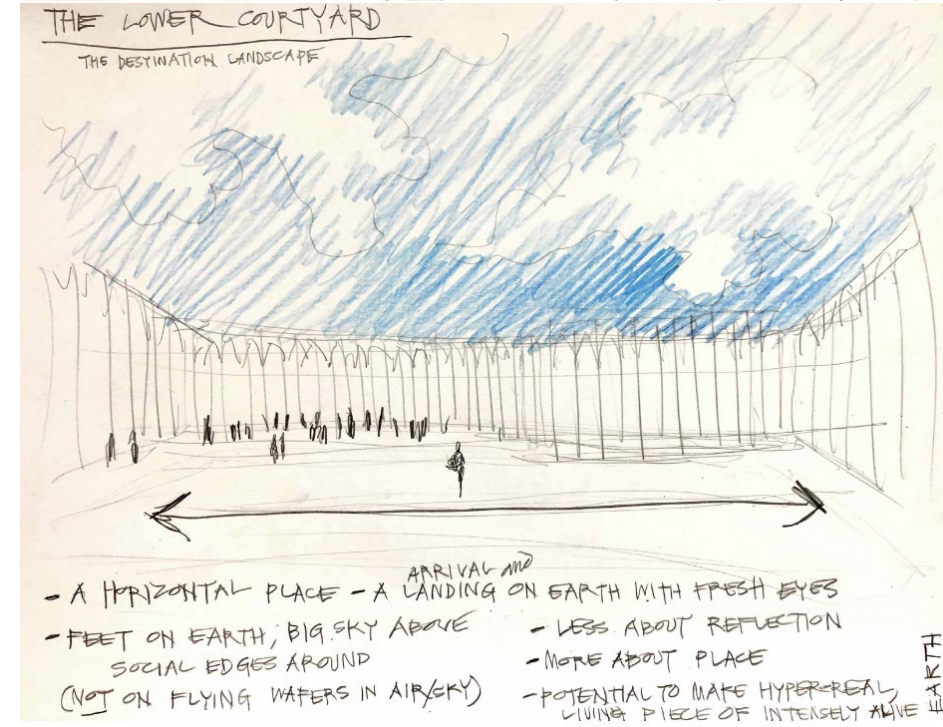 THE LOWER COURTYARD
THE DESTINATION LANDSCAPE
- A HORIZONTAL PLACE - A ARRIVAL AND LANDING ON EARTH WITH FRESH EYES
- FEET ON EARTH, BIG SKY ABOVE
SOCIAL EDGES AROUND
(NOT ON FLYING WAFERS IN AIR/SKY)
- LESS ABOUT REFLECTION
- MORE ABOUT PLACE
- POTENTIAL TO MAKE HYPER-REAL,
LIVING PIECE OF INTENSELY ALIVE
EARTH